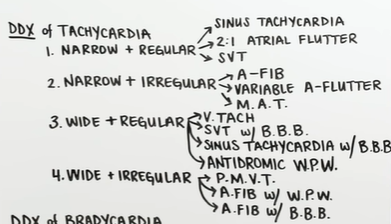 DDX of TACHYCARDIA
SINUS TACHYCARDIA
1. NARROW + REGULAR
2:1 ATRIAL FLUTTER
SVT
2. NARROW + IRREGULAR
A-FIB
VARIABLE A-FLUTTER
M.A.T.
3. WIDE + REGULAR
V.TACH
SVT w/ B.B.B.
SINUS TACHYCARDIA w/ B.B.B
ANTIDROMIC W.P.W.
4. WIDE + IRREGULAR
P.M.V.T.
A.FIB w/ W.P.W.
A.FIB w/ B.B.B.
DDX of BRADYCARDIA